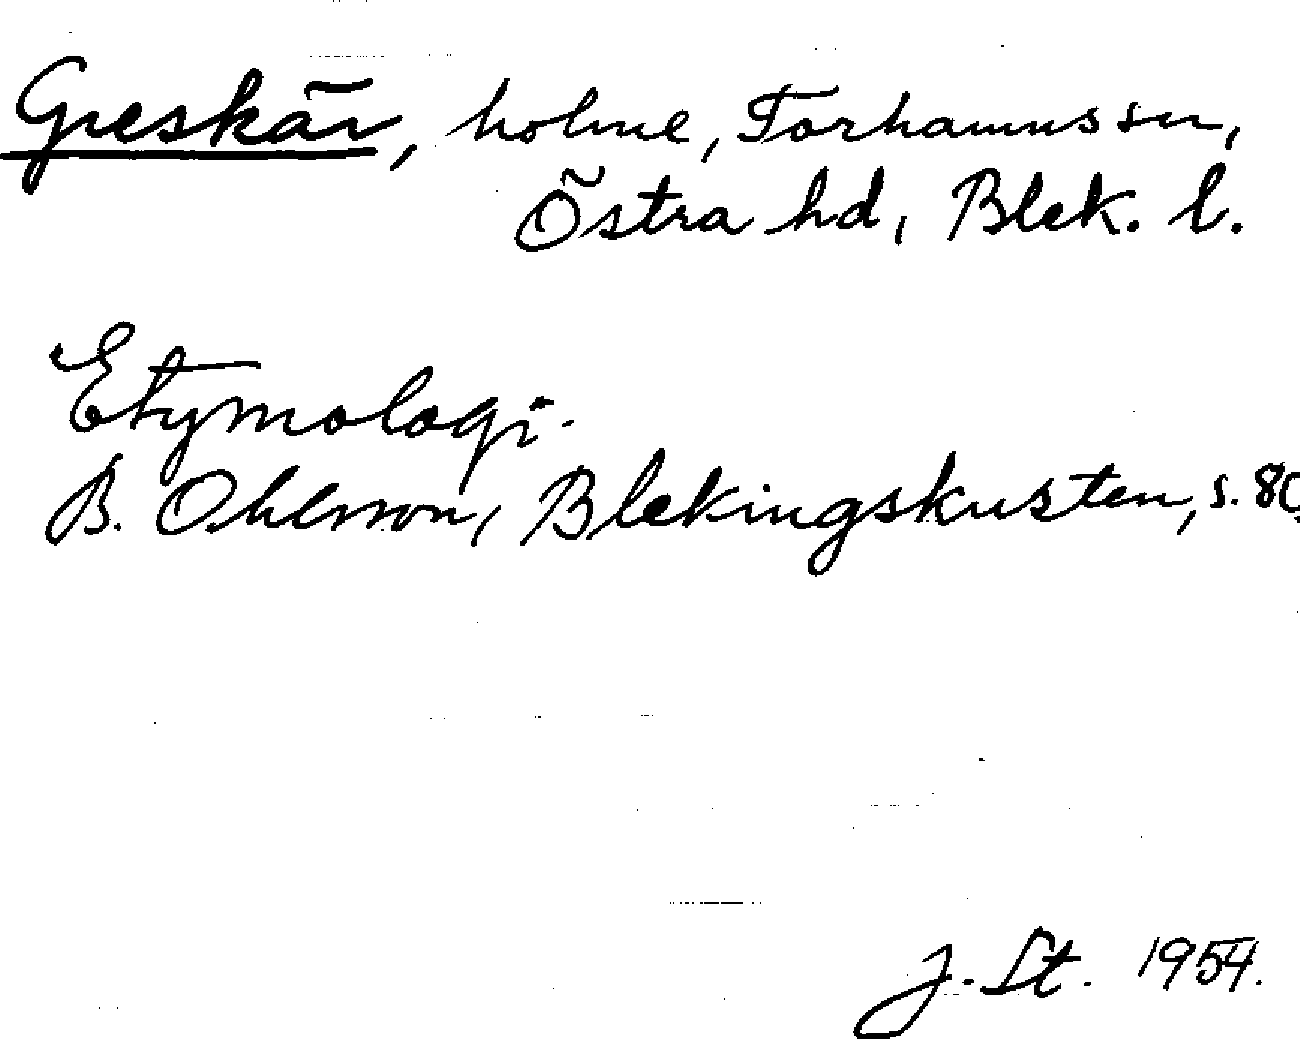 Greskär, holme, Torhamns sn,
Östra hd, Blek. l.
Etymologi.
B. Ohlsson, Blekingskusten, s. 80.
J. St. 1954.